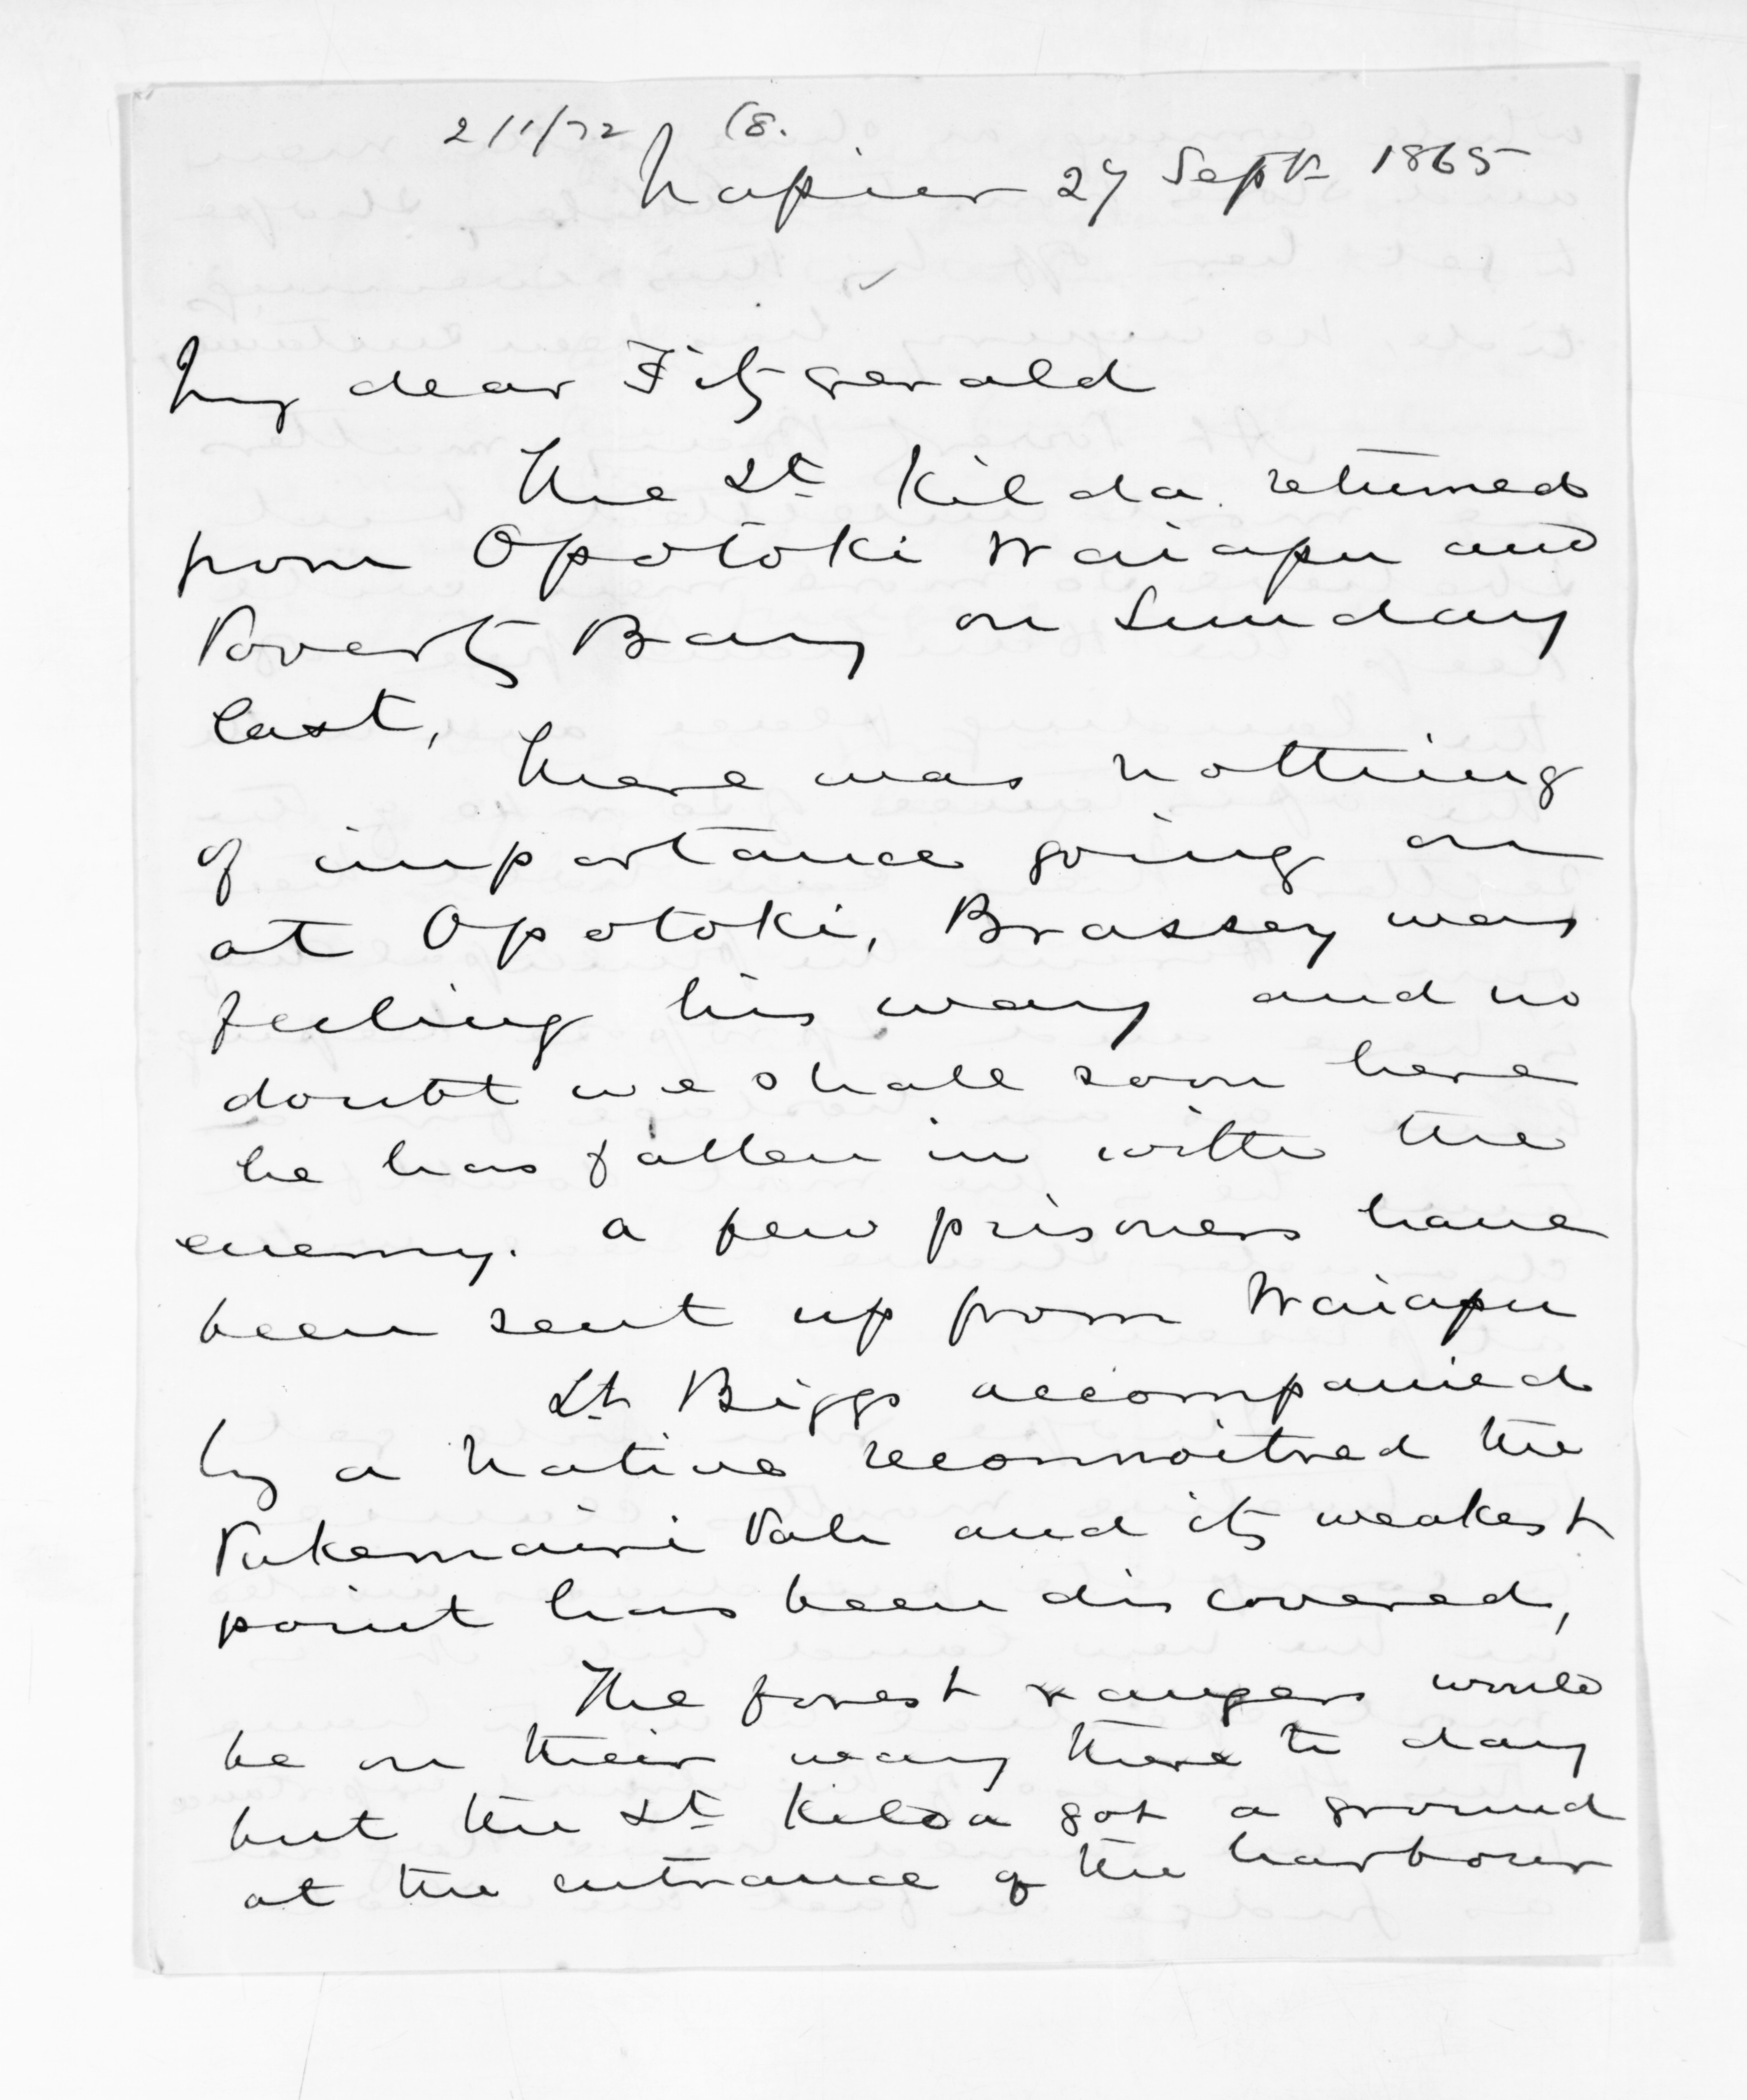 2/1/72 (8.
Napier 27 Septr 1865
My dear Fitzgerald
The St Kilda returned
from Opotoki Waiapu and
Poverty Bay on Sunday
last,
There was nothing
of importance going on
at Opotoki, Brassey was
feeling his way and no
doubt we shall soon here
he has fallen in with the
enemy. a few prisoners have
been sent up from Waiapu
Lt Biggs accompanied
by a native reconnoitred the
Pukemairi Pah and its weakest
point has been discovered,
The forest rangers would
be on their way there to day
but the St Kilda got a ground
at the entrance of the harbour